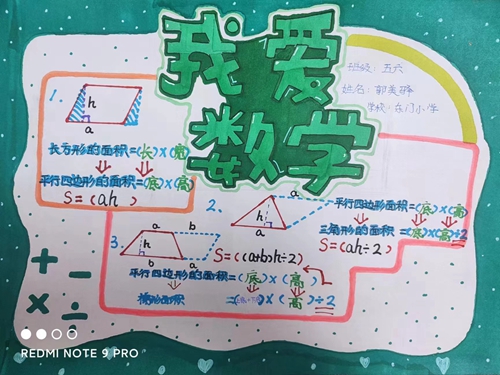 我爱
数学
班级：五六
学校：东门小学
1.
h
a
长方形的面积=(长)×(宽)
平行四边形的面积=(底)×(高)
S=(ah)
2.
a
h
a
平行四边形面积=(底)×(高)
三角形的面积=(底)×(高)÷2
S=(ah÷2)
3.
a b
h
b a
S=((a+b)h÷2)
平行四边形的面积=(底)×(高)
梯形面积 ×(高)÷2
+ −
× ÷
REDMI NOTE 9 PRO